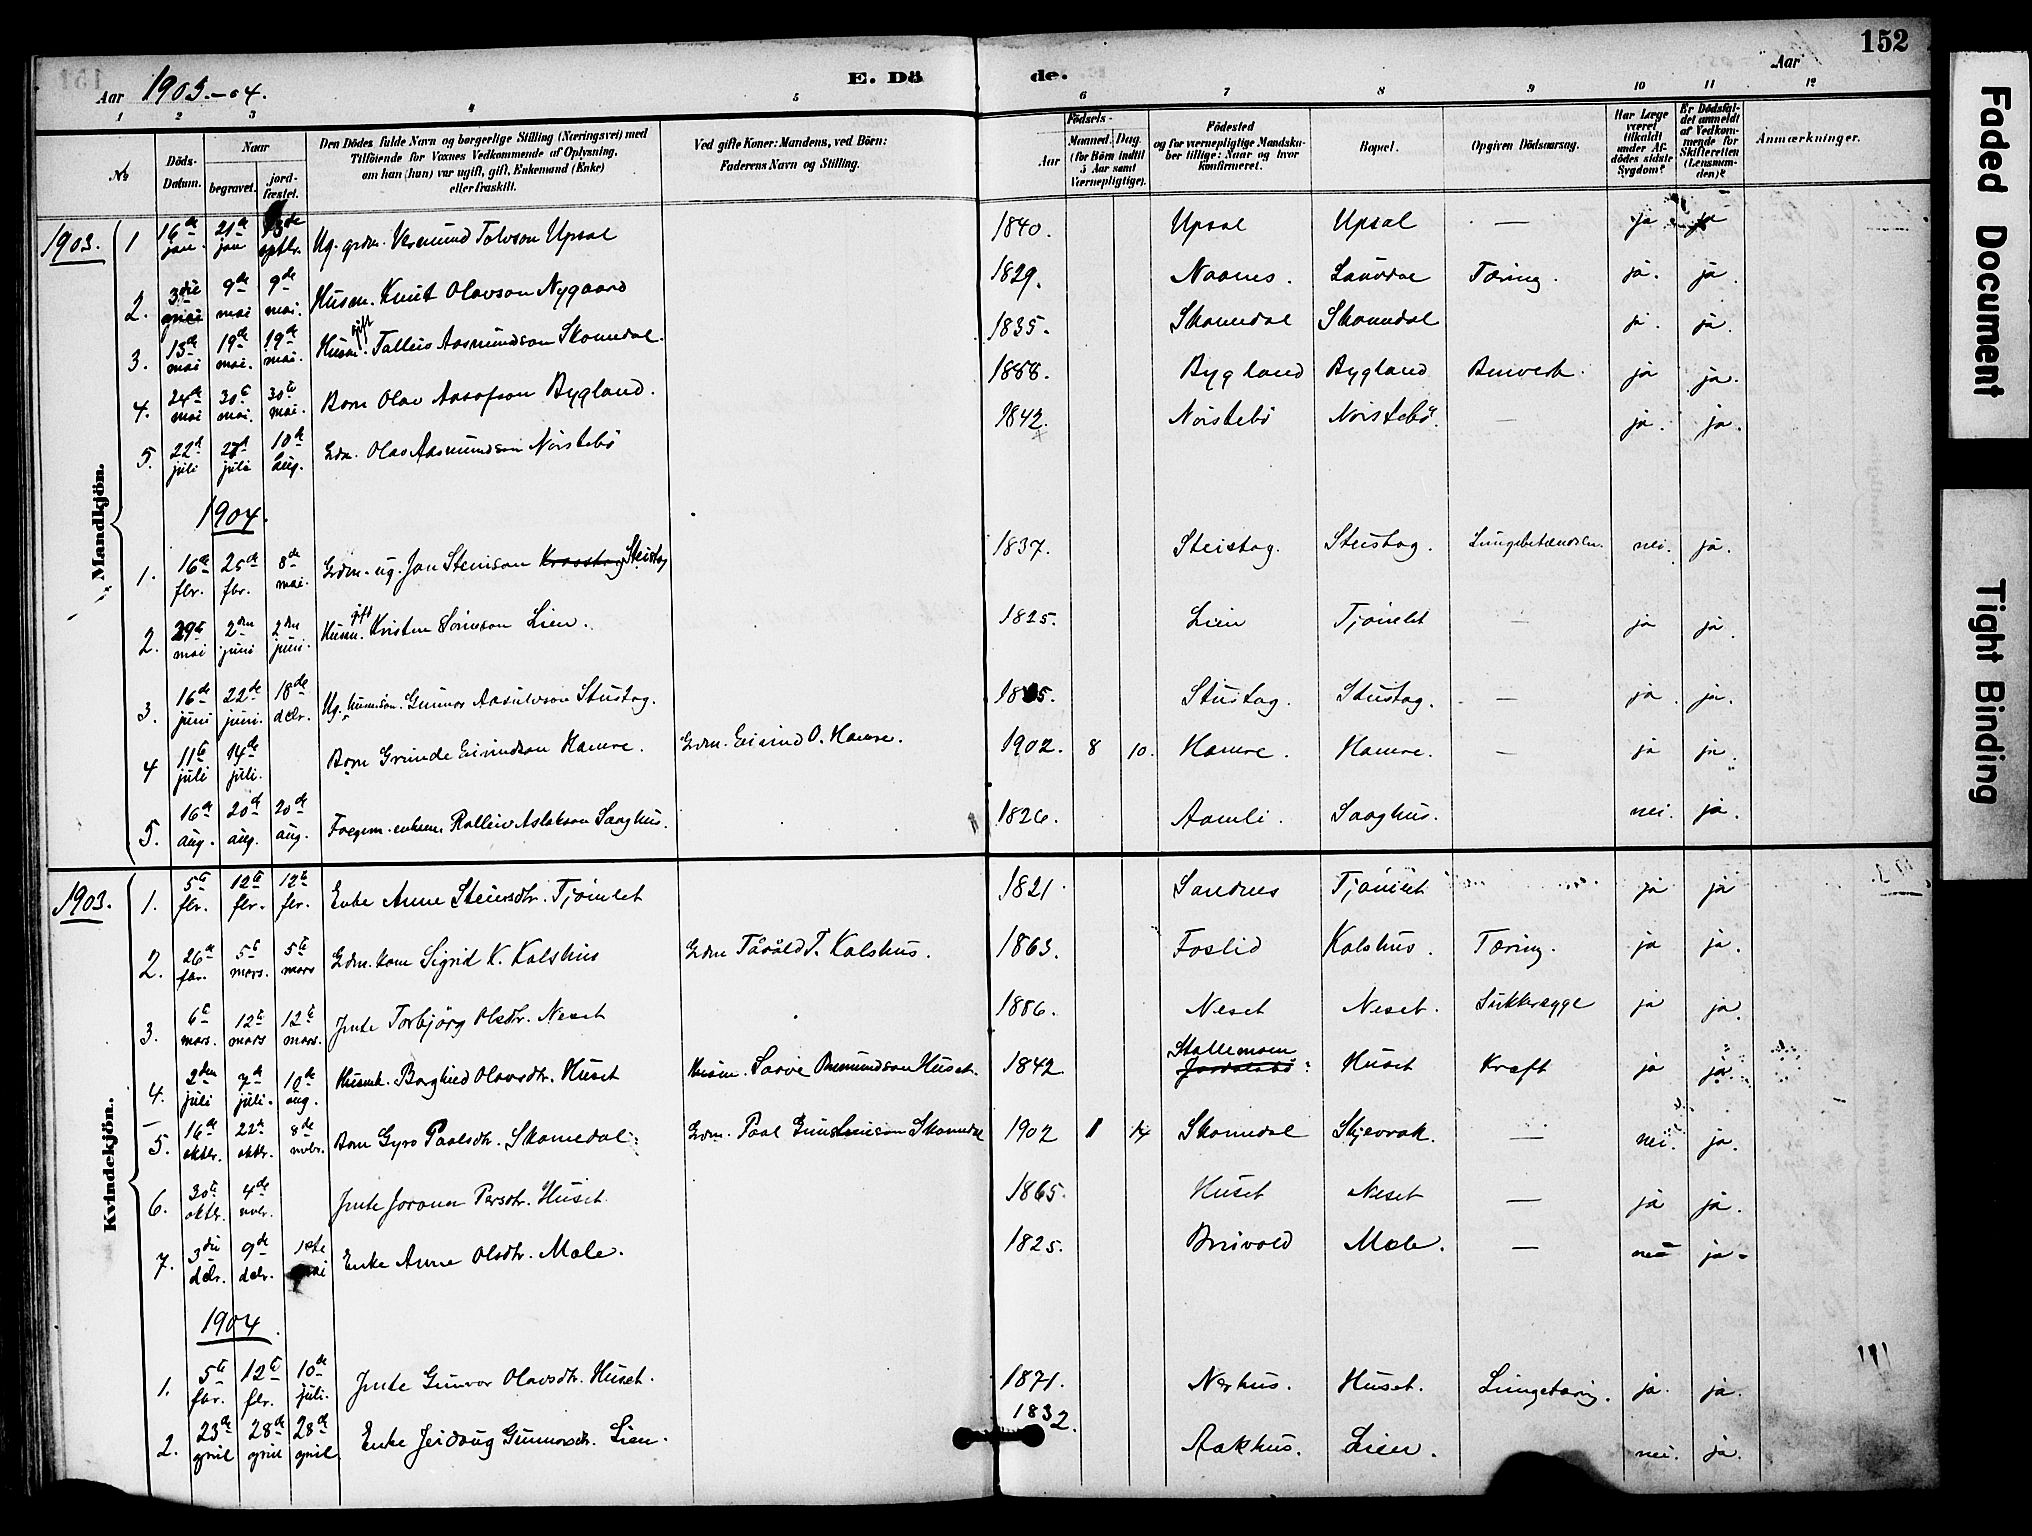 152
Aar 1903.-04.
E. Dö de.
Aar
1 2 3 4 5 6 7 8 9 10 11 12
No
Döds-Datum.
Naar
begravet.
jord-fæstet.
Den Dödes fulde Navn og borgerlige Stilling (Næringsvei) med
Tilföiende for Voxnes Vedkommende af Oplysning,
om han (hun) var ugift, gift, Enkemand (Enke)
eller fraskilt.
Ved gifte Koner: Mandens, ved Börn:
Faderens Navn og Stilling.
Födsels-
Aar
Maaned. Dag.
(for Börn indtil
5 Aar samt
Værnepligtige).
Födested
og for værnepligtige Mandsku-
ber tillige: Naar og hvor
konfirmeret.
Bopæl.
Opgiven Dödsaarsag.
Har Læge
været
tilkaldt
under Af-
dödes sidste
Sygdom?
Er Dödsfal-
det anmeldt
af Vedkom-
mende for
Skifteretten
(Lensman-
den)?
Anmærkninger.
Mandkjön.
1903. 1 16de jan. 21de jan 13de sptbr. Ug. grdm. Vermund Tolvson Upsal 1840. Upsal Upsal — ja ja
2. 3die mai 9de mai 9de mai. Husm. Knut Olavson Nygaard 1829. Naanes. Lauvdal Tæring. ja. ja.
3. 13de mai 19de mai. 19de mai. Husm. gift Talleiv Aasmundson Skomedal. 1835. Skomedal Skomedal ja. ja.
4. 24de mai 30te mai. 30te mai. Barn Olav Aasofson Bygland. 1888. Bygland Bygland ja ja.
5. 22de juli 27de juli 10de aug. Gdm. Olav Aasmundson Nórstebö 1842. Nórstebö Nórstebö. — ja. ja.
1904.
1. 16de fbr. 25de fbr. 8de mai. Grdm. ug. Jon Steinson Steistog 1837. Steistog. Steistog. Lungebetændelse. nei. ja.
2. 29te mai 2den juni 2den juni. Husm. gift Kristen Lien. 1825. Lien Tjómlet — ja ja.
3. 16de juni 22de juni. 18de decbr. Ug. husmson. Gunnar Aasulvson Stustog. Stustog. Stustog. — ja. ja.
4 11te juli 14de juli. Barn Grunde Eivindson Hamre. Gdm. Eivind O. Hamre. 1902. 8 10. Hamre. Hamre. — ja ja.
5. 16de aug. 20de aug. 20de aug. enkem. Aslakson Saaghus. 1826. Aamli. Saaghus. nei. ja.
Kvindekjön.
1903. 1. 5te fbr. 12te fbr. 12te fbr. Enke Anne Steinsdtr. Tjómlet 1821 Sandnes Tjómlet ja ja
2. 26de fbr. 5te mars. 5te mars Gdm. kone Sigrid K. Kalshus Gdm Tåråld T. Kalshus. 1863. Foslid Kalshus. Tæring. ja ja.
3. 6te mars. 12te mars 12te mars. Jente Torbjörg Olsdtr. Neset 1886. Neset Neset. Sukkersyge ja ja.
4. 2den juli 7de juli. 10de aug. Husmk. Borghild Olavsdtr. Huset Husm. Huset. 1842 Stallemoen Huset Kræft ja ja.
5. 16de oktbr. 22de oktbr. 8de nvbr. Barn Gyro Paalsdtr. Skomedal. Gdm. Paal Skomedal 1902 1 14 Skomedal Skjevrak. — nei. ja.
6. 30te oktbr. 4de nvbr. Jente Jorann Persdtr. Huset. 1865. Huset Neset — ja ja.
7. 3die decbr. 9de decbr. 1ste mai Enke Anne Olsdtr. Mæle. 1825. Mæle. — nei ja.
1904.
1. 5te fbr. 12te fbr. 10de juli. Jente Gunvor Olavsdtr. Huset. 1871. Nerhus. Huset. Lungetæring. ja. ja.
2. 23de april 28de april 28de april Enke Gunnarsdtr. Lien. 1832. Aakhus. Lien. nei. ja.
Faded Document
Tight Binding